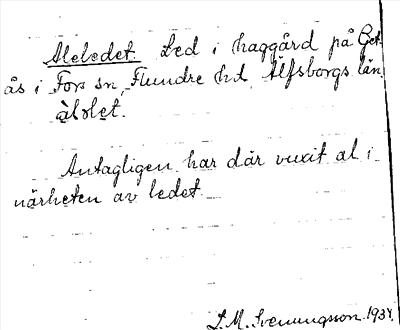 Aleledet. Led i haggård på Get-
ås i Fors sn, Flundre hd, Älfsborgs län
Antagligen har där vuxit al i
närheten av ledet.
L. M. Svenungsson. 1934.